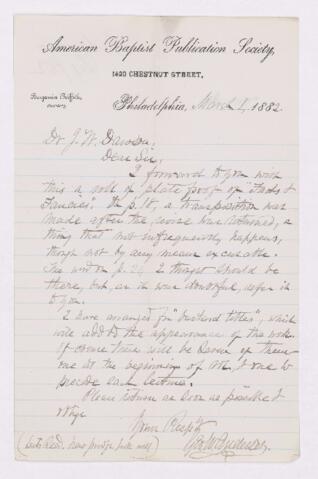 American Baptist Publication Society,
1420 CHESTNUT STREET,
Benjamin Griffith,
Philadelphia, March 1, 1882.
Dr J. W. Dawson,
Dear Sir,
I forward to you with
this a roll of plate proof of "Facts &
Fancies". On p. 18, a transposition was
made after the revise was returned, a
thing that not infrequently happens,
though not by any means excusable.
The word on p. 24 I thought should be
there, but as it was doubtful, refer it
to you.
I have arranged for "bastard titles", which
will add to the appearance of the work.
Of course there will be seven of them
one at the beginning of all, & one to
precede each lecture.
Please return as soon as possible &
oblige
Yours Respy
(